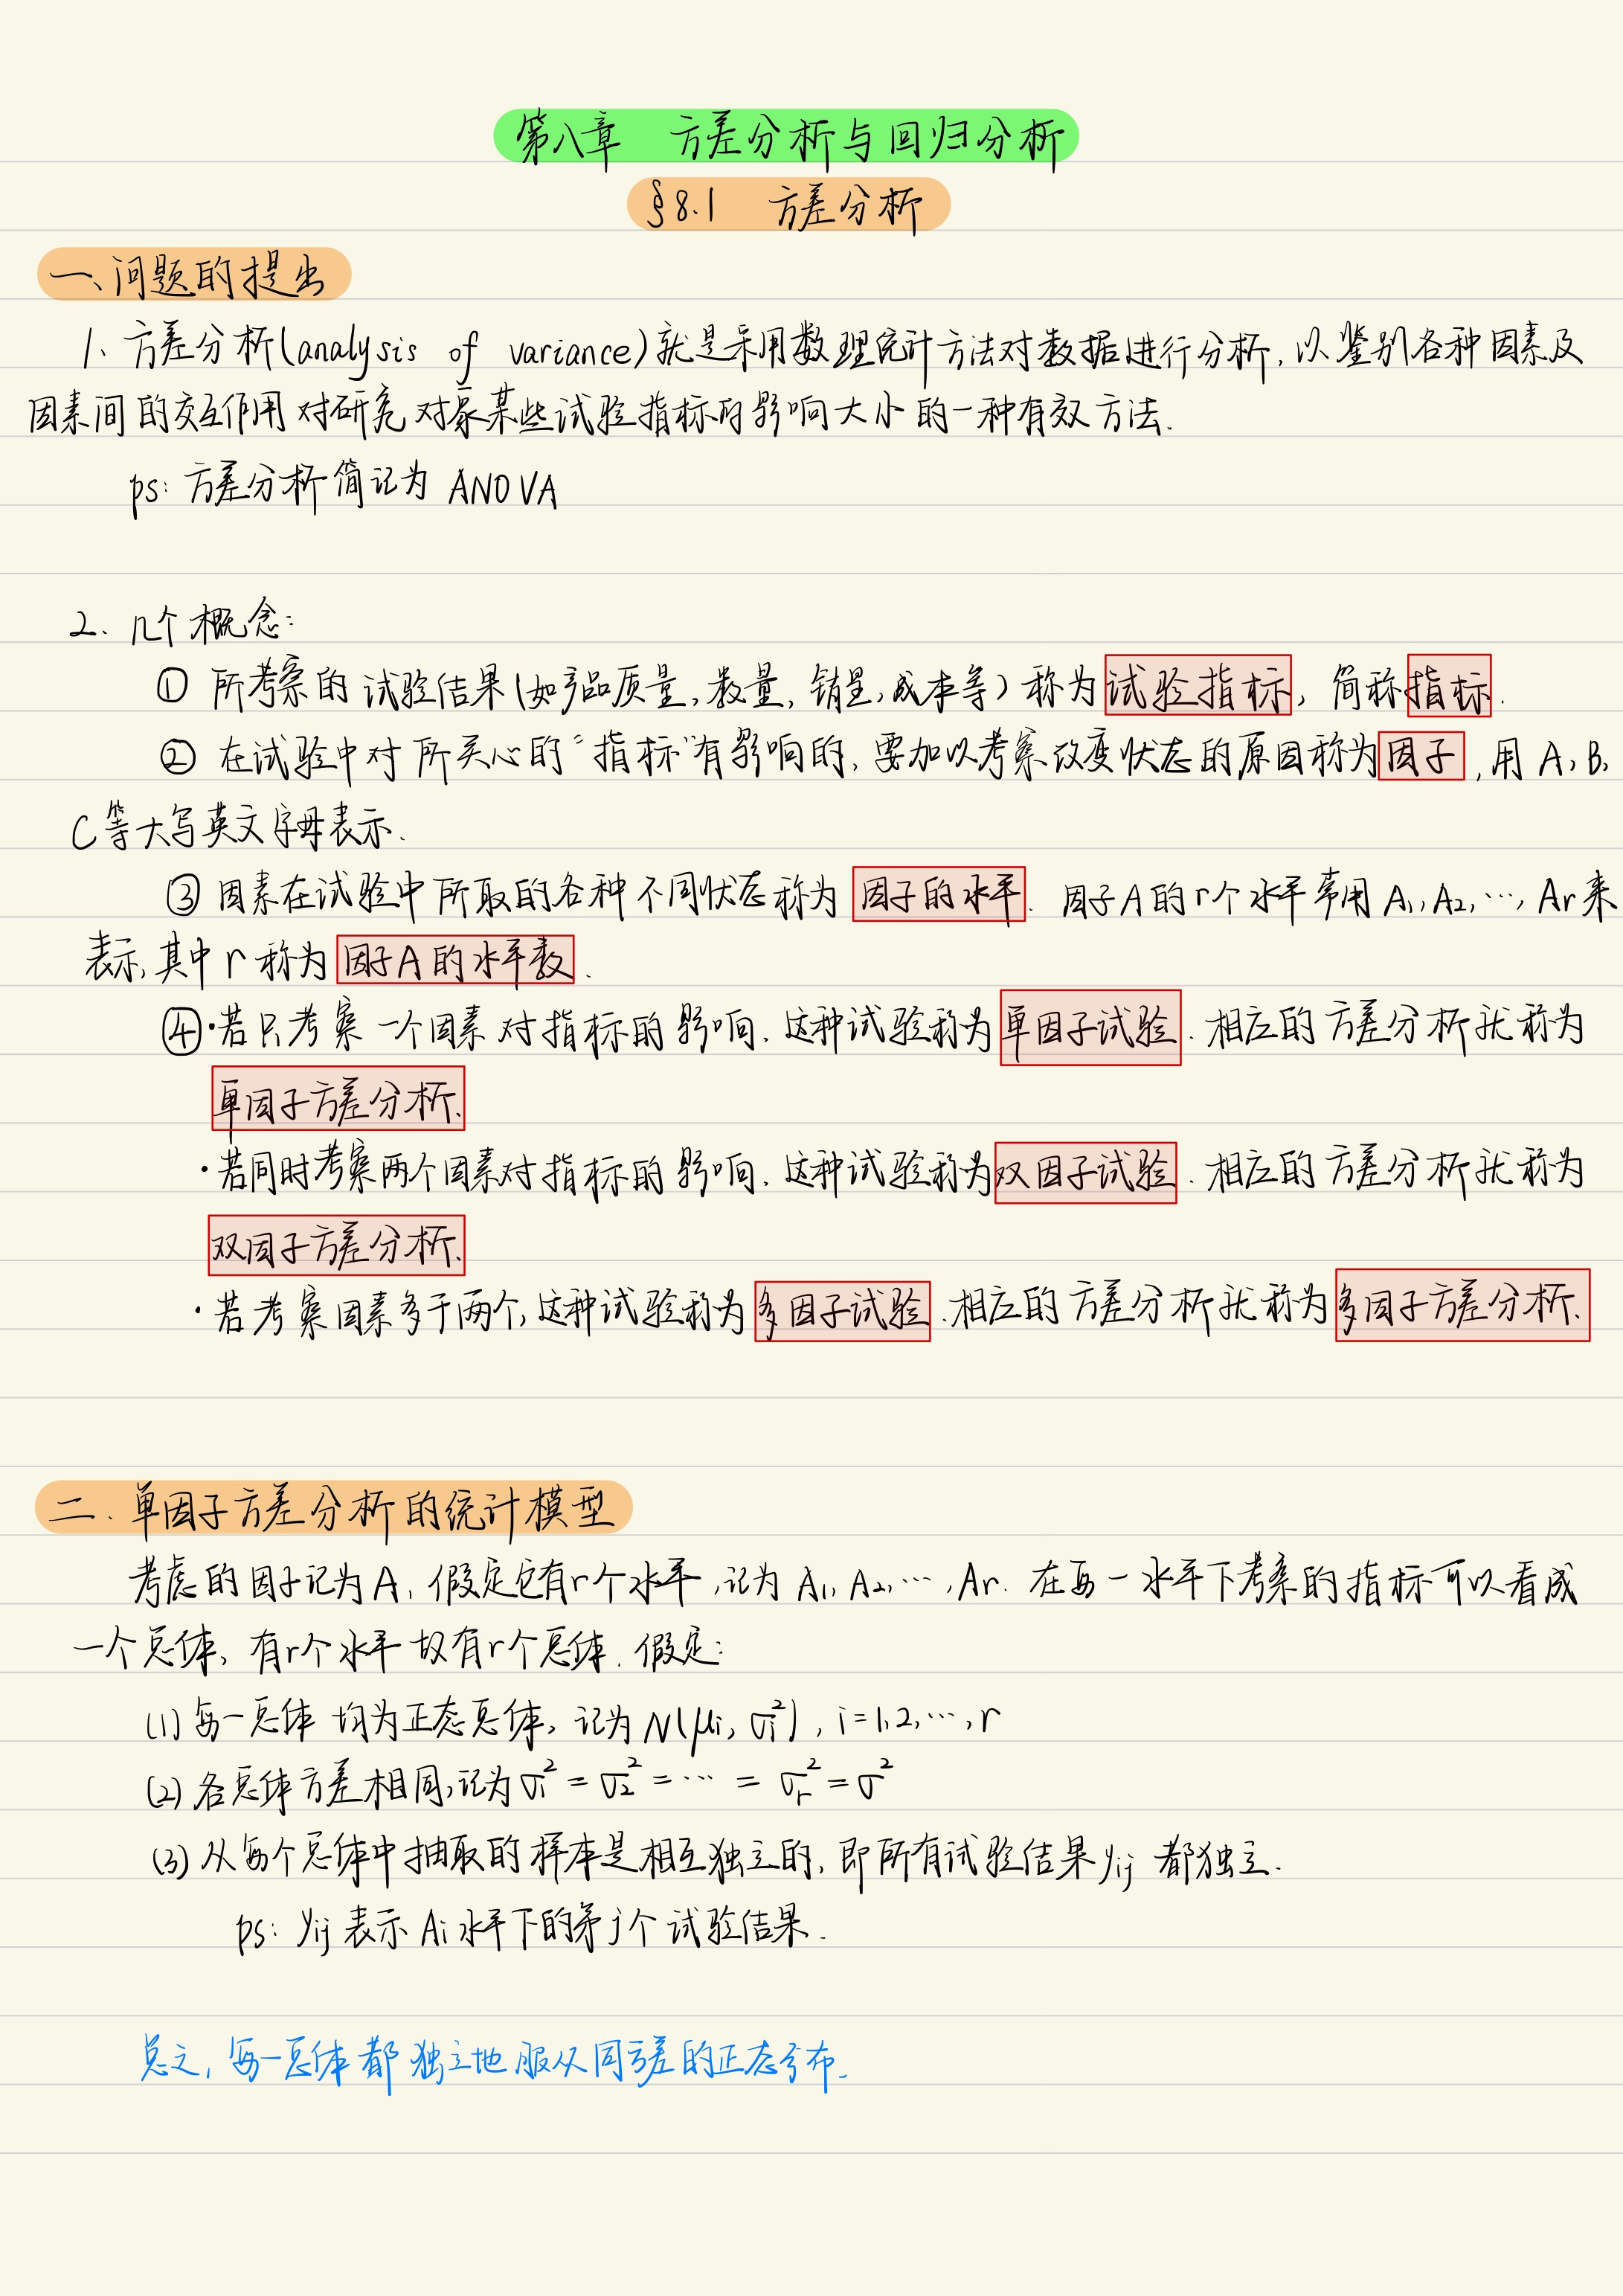 第八章 方差分析与回归分析
§8.1 方差分析
一、问题的提出
1、方差分析(analysis of variance)就是采用数理统计方法对数据进行分析,以鉴别各种因素及
因素间的交互作用对研究对象某些试验指标的影响大小的一种有效方法.
ps: 方差分析简记为 ANOVA
2. 几个概念:
① 所考察的试验结果(如产品质量,数量,销量,成本等)称为试验指标,简称指标.
② 在试验中对所关心的"指标"有影响的,要加以考察改变状态的原因称为因子,用 A,B,
C等大写英文字母表示.
③ 因素在试验中所取的各种不同状态称为因子的水平. 因子A的r个水平常用 A₁,A₂,…,Ar来
表示,其中r称为因子A的水平数.
④·若只考察一个因素对指标的影响.这种试验称为单因子试验.相应的方差分析就称为
单因子方差分析.
·若同时考察两个因素对指标的影响.这种试验称为双因子试验.相应的方差分析就称为
双因子方差分析.
·若考察因素多于两个,这种试验称为多因子试验.相应的方差分析就称为多因子方差分析.
二.单因子方差分析的统计模型
考虑的因子记为A,假定它有r个水平,记为 A₁,A₂,…,Ar. 在每一水平下考察的指标可以看成
一个总体,有r个水平故有r个总体.假定:
(1) 每一总体均为正态总体,记为N(μi, σi²), i=1,2,…,r
(2) 各总体方差相同,记为σ₁²=σ₂²=…=σr²=σ²
(3) 从每个总体中抽取的样本是相互独立的,即所有试验结果yij 都独立.
ps: yij 表示Ai水平下的第j个试验结果.
总之,每一总体都独立地服从同方差的正态分布.